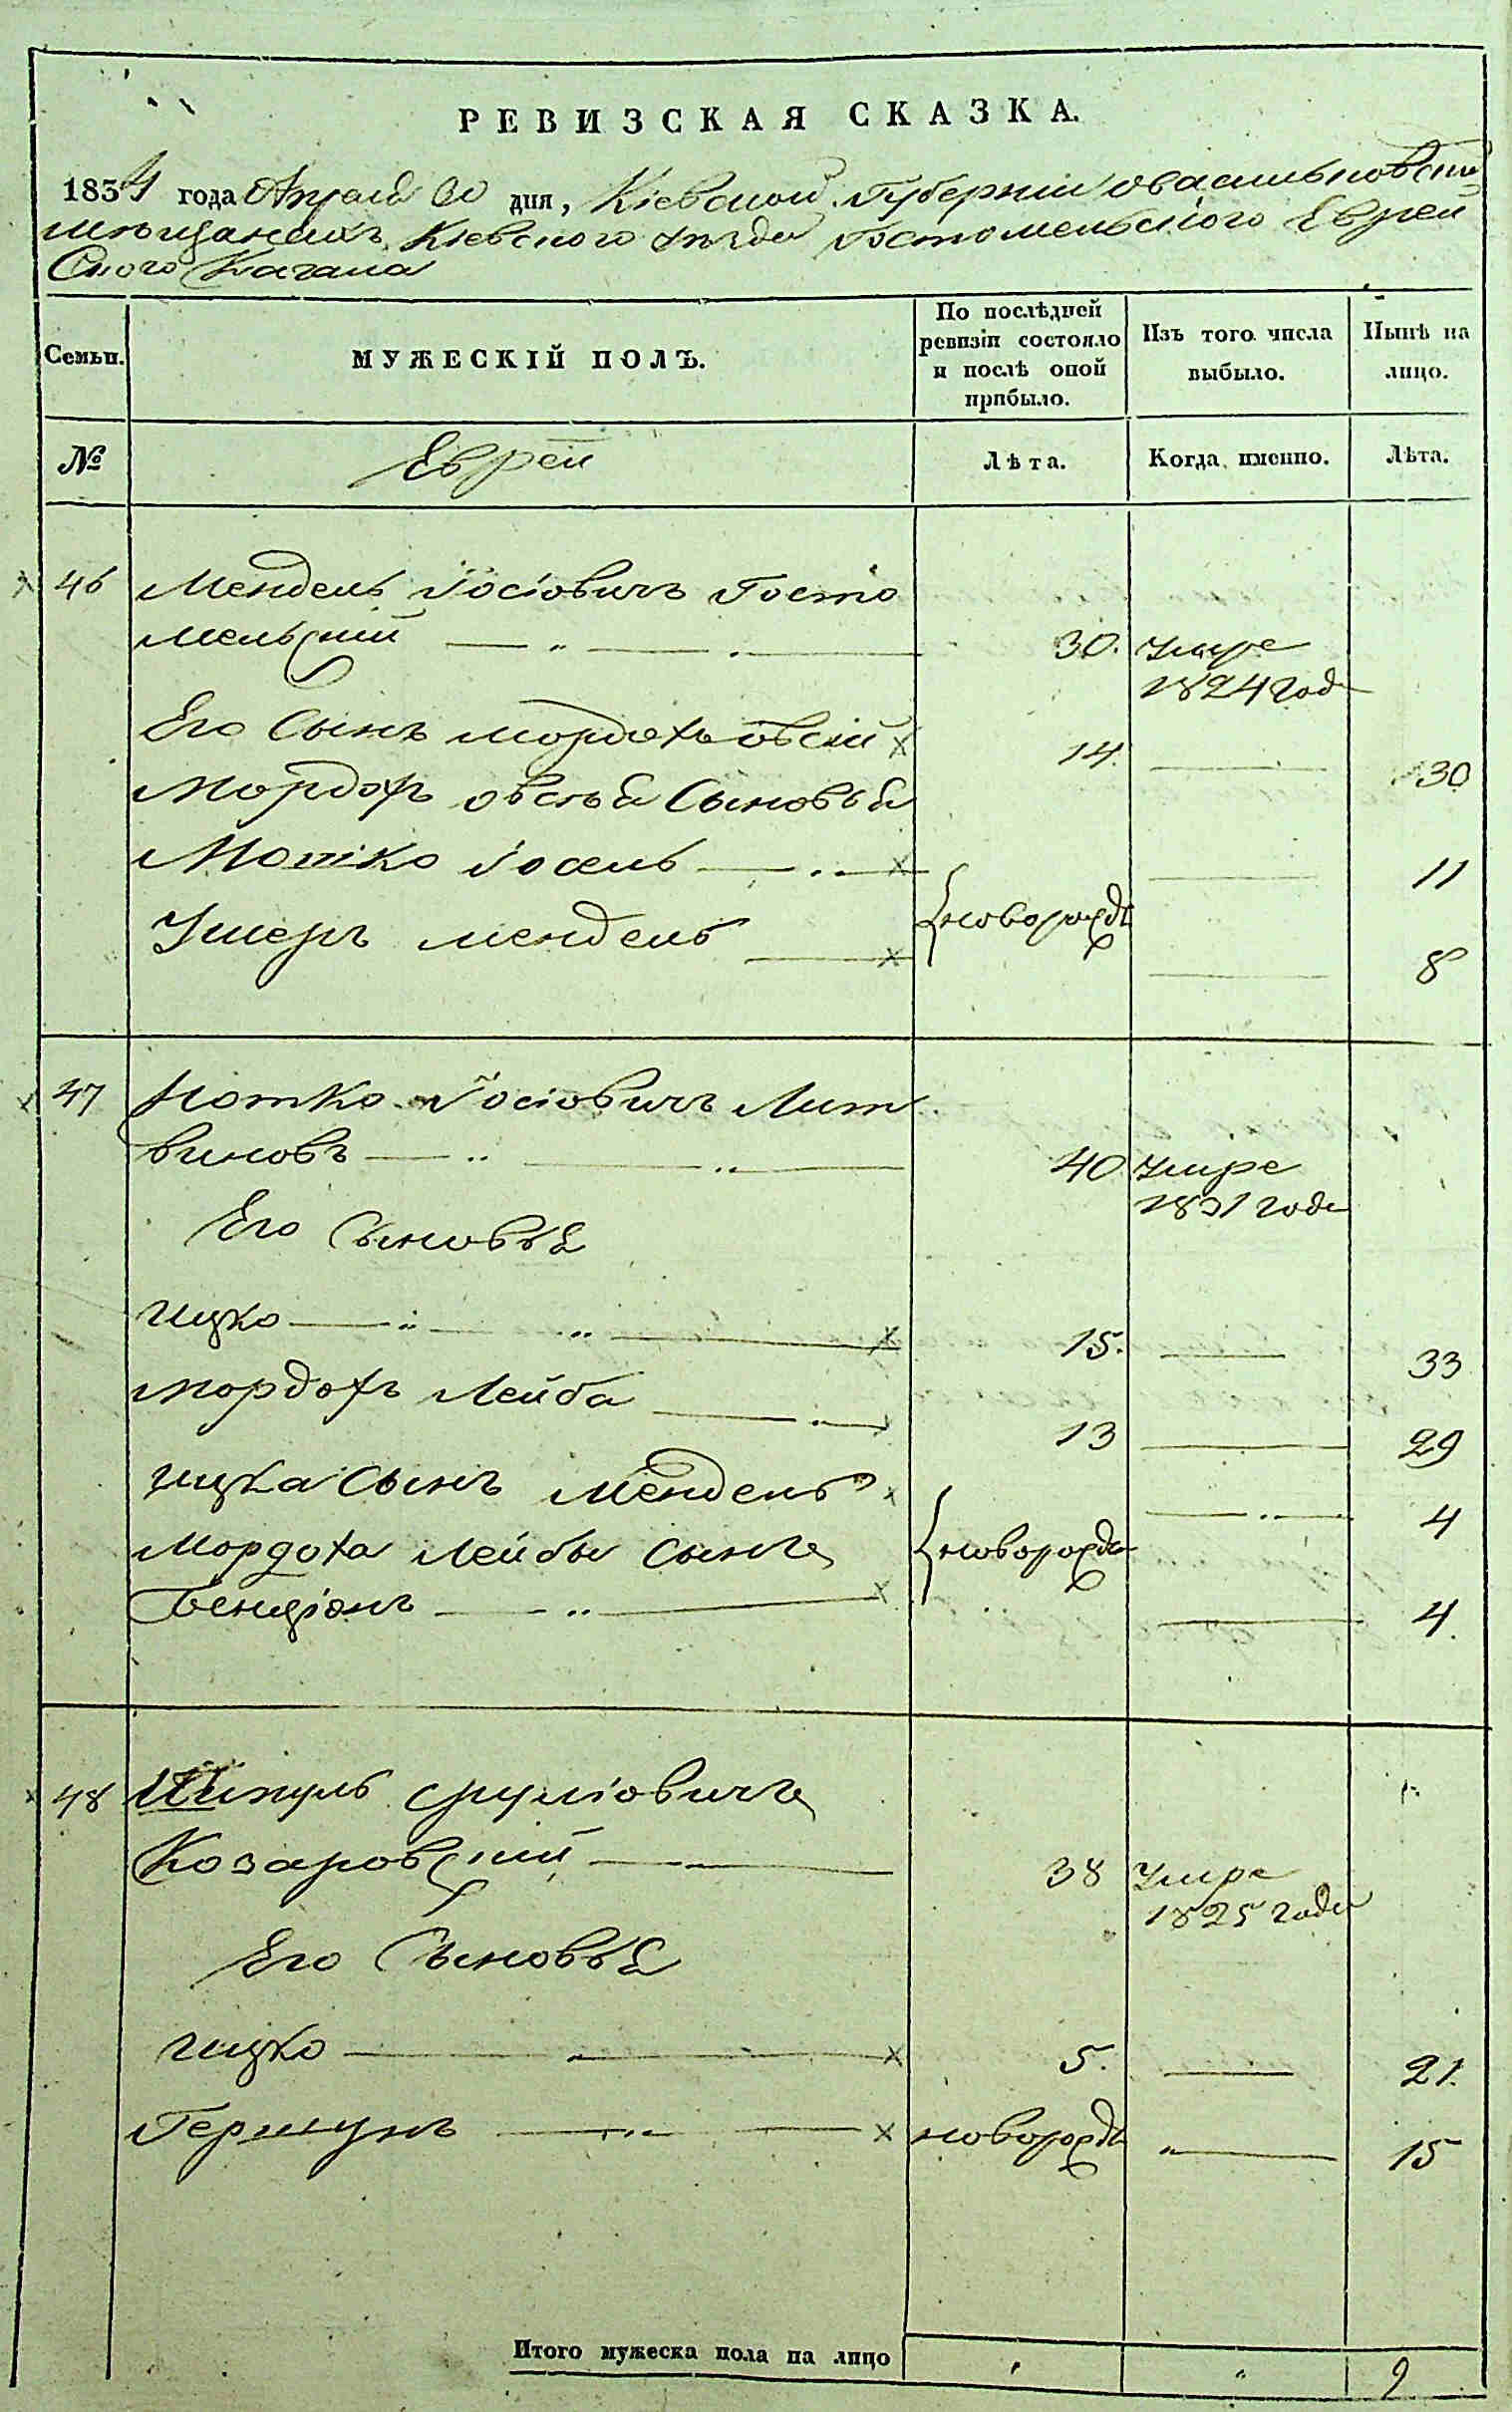 РЕВИЗСКАЯ СКАЗКА.
1834 года Апреля 30 дня, Кіевской Губерніи о васильковски
мѣщанахъ Кіевского уѣзда Гостомельского Еврей
Ского Кагала
Семьи.
МУЖЕСКІЙ ПОЛЪ.
По послѣдней ревизіи состояло и послѣ оной прибыло.
Изъ того числа выбыло.
Нынѣ на лицо.
№
Еврей
Лѣта.
Когда именно.
Лѣта.
46 Мендель Іосіовичъ Госто
мельский 30. умре
1824 год
Его Сынъ мордохъ овсій 14. 30
Мордохъ овсѣя Сыновья
Мотко Іосель 11
новорожд
Ушеръ мендель 8
47 Нотко Іосіовичъ Лит
виновъ 40 умре
1831 года
Его Сыновья
ицко 15. 33
мордохъ Лейба 13 29
ицка Сынъ Мендель 4
новорожд
Мордоха Лейбы Сынъ
Бенціонъ 4.
48 Шмуль Сруліовичъ
Козаровский 38 умре
1825 года
Его Сыновья
ицко 5. 21.
Гершунъ новорожд 15
Итого мужеска пола на лицо 9